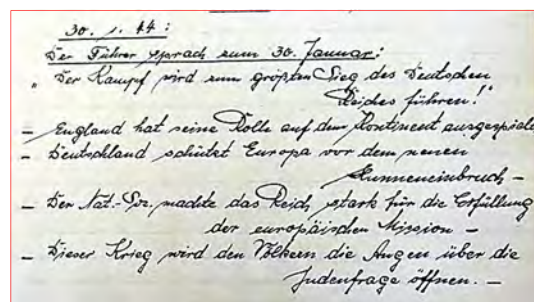 30. 1. 44:
Der Führer sprach zum 30. Januar:
„Der Kampf wird zum größten Sieg des Deutschen
Reiches führen!"
- England hat seine Rolle auf dem Kontinent ausgespielt
- Deutschland schützt Europa vor dem neuen
Hunneneinbruch -
- Der Nat.-Soz. machte das Reich stark für die Erfüllung
der europäischen Mission -
- Dieser Krieg wird den Völkern die Augen über die
Judenfrage öffnen. -